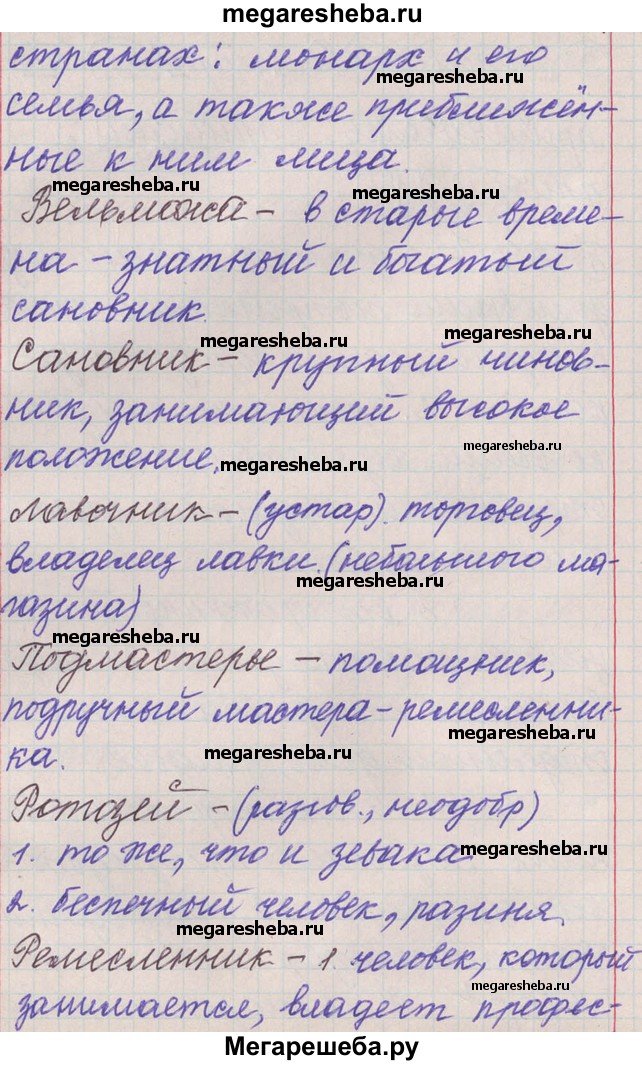 megaresheba.ru
странах: монарх и его
megaresheba.ru
семья, а также приближён-
ные к ним лица.
megaresheba.ru
megaresheba.ru
Вельможа - в старые време-
на - знатный и богатый
сановник.
megaresheba.ru
megaresheba.ru
Сановник - крупный чинов-
ник, занимающий высокое
megaresheba.ru
положение.
megaresheba.ru
Лавочник - (устар). торговец,
владелец лавки (небольшого ма-
megaresheba.ru
газина)
megaresheba.ru
Подмастерье - помощник,
подручный мастера-ремесленни-
megaresheba.ru
ка.
megaresheba.ru
Ротозей - (разгов., неодобр)
1. то же, что и зевака
megaresheba.ru
2. беспечный человек, разиня.
megaresheba.ru
megaresheba.ru
Ремесленник - 1. человек, который
megaresheba.ru
занимается, владеет профес-
Мегарешеба.ру